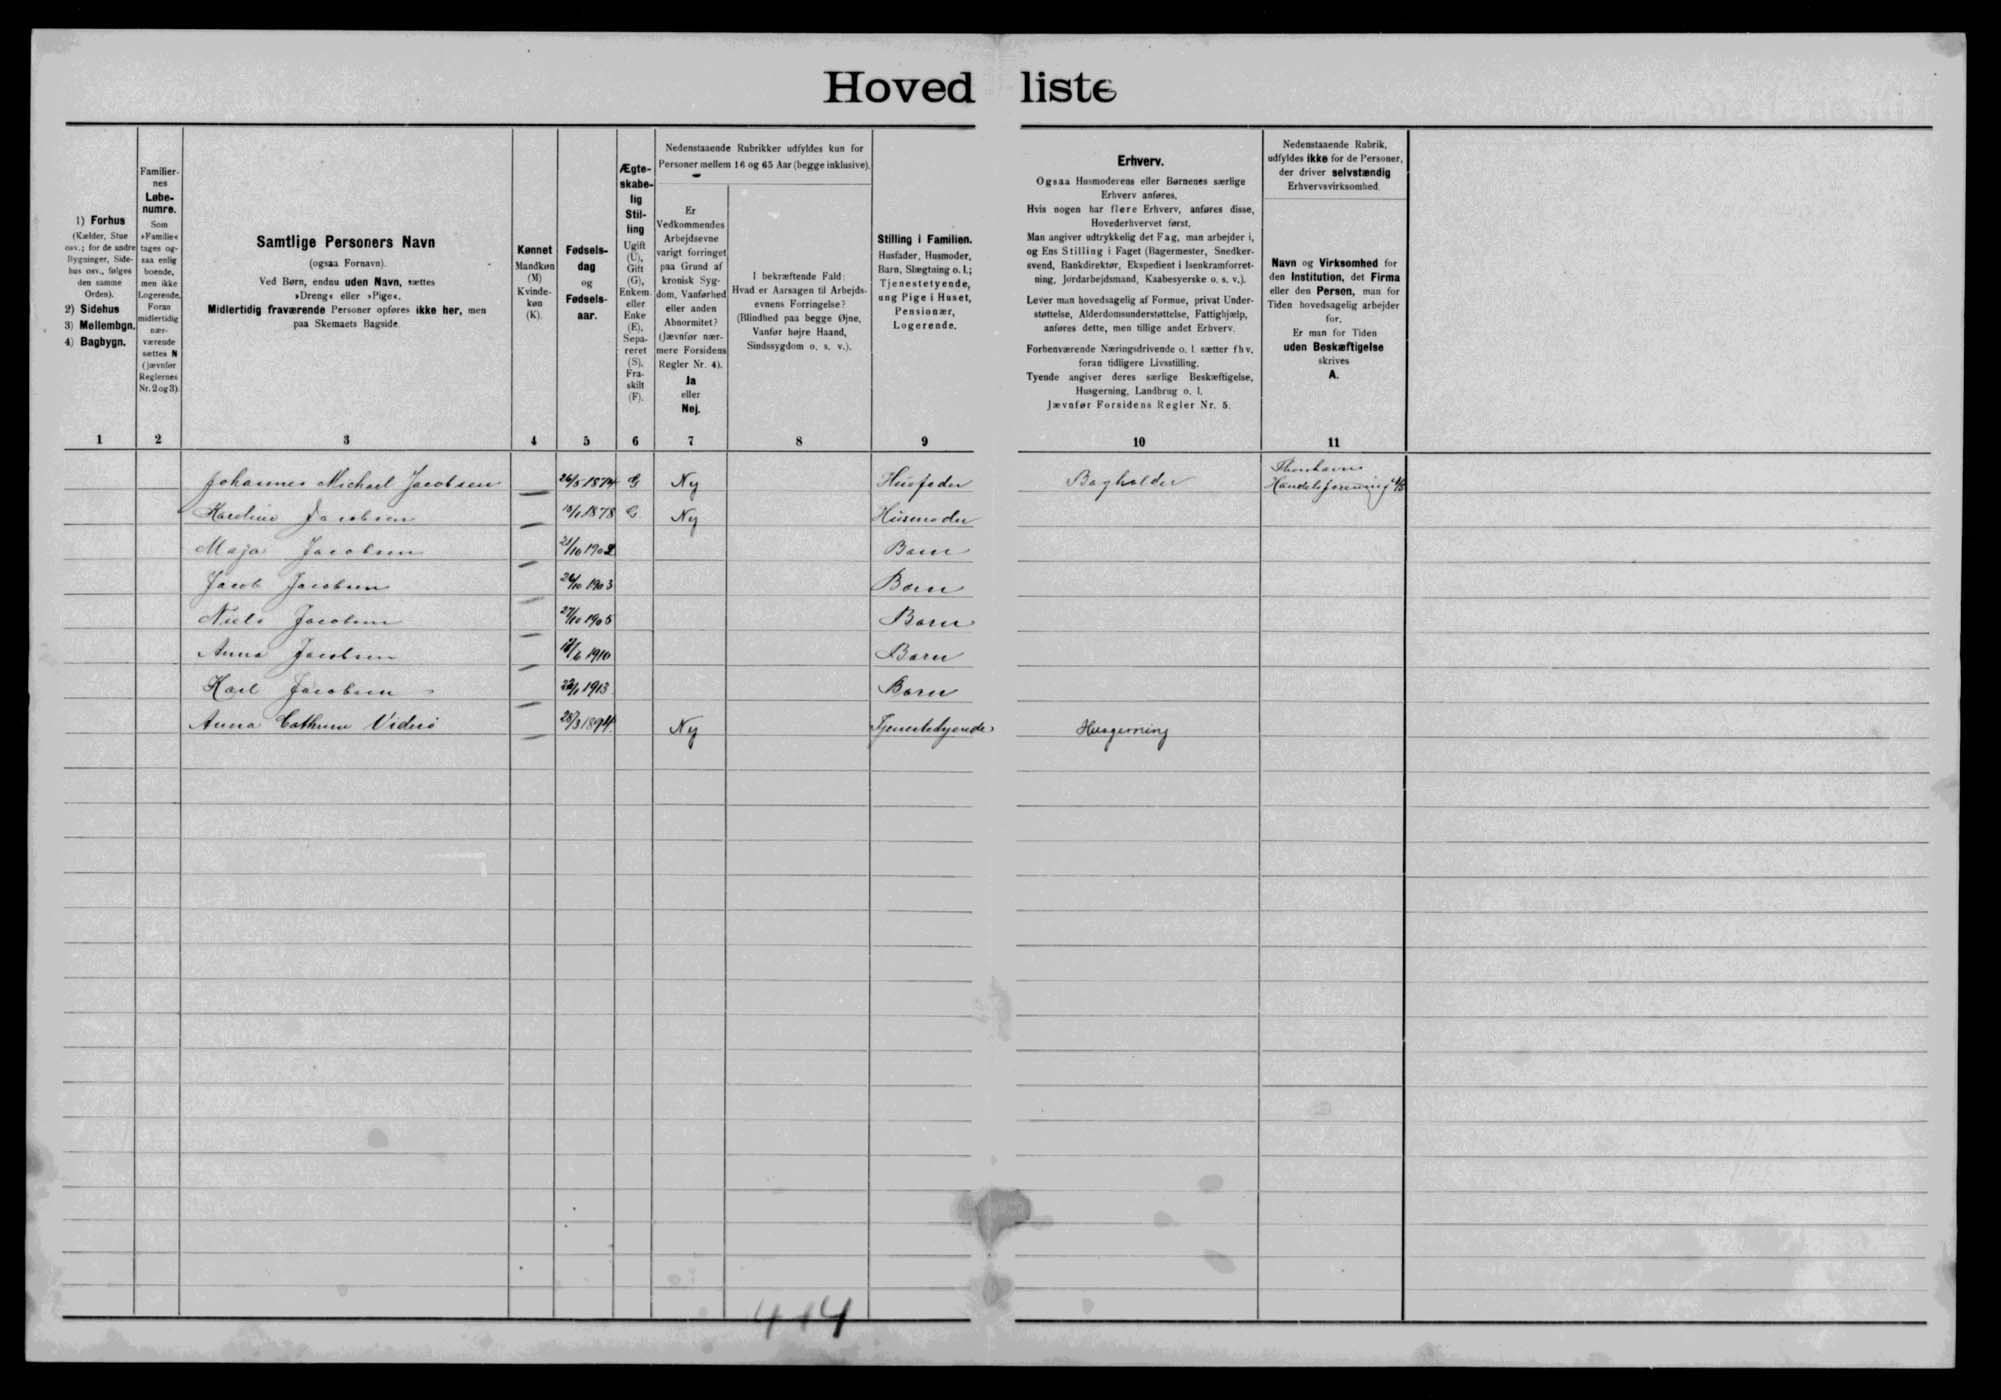 Hovedliste
1) Forhus
(Kælder, Stue
osv.; for de andre
Bygninger, Side-
hus osv., følges
den samme
Orden).
2) Sidehus
3) Mellembgn.
4) Bagbygn.
Familier-
nes
Løbe-
numre.
Som
»Familie«
tages og-
saa enlig
boende,
men ikke
Logerende.
Foran
midlertidig
nær-
værende
sættes N
(jævnfør
Reglernes
Nr. 2 og 3)
Samtlige Personers Navn
(ogsaa Fornavn).
Ved Børn, endnu uden Navn, sættes
»Dreng« eller »Pige«.
Midlertidig fraværende Personer opføres ikke her, men
paa Skemaets Bagside.
Kønnet
Mandkøn
(M)
Kvinde-
køn
(K).
Fødsels-
dag
og
Fødsels-
aar.
Ægte-
skabe-
lig
Stil-
ling
Ugift
(U),
Gift
(G),
Enkem.
eller
Enke
(E),
Sepa-
reret
(S),
Fra-
skilt
(F).
Nedenstaaende Rubrikker udfyldes kun for
Personer mellem 16 og 65 Aar (begge inklusive).
Er
Vedkommendes
Arbejdsevne
varigt forringet
paa Grund af
kronisk Syg-
dom, Vanførhed
eller anden
Abnormitet?
(Jævnfør nær-
mere Forsidens
Regler Nr. 4).
Ja
eller
Nej.
I bekræftende Fald:
Hvad er Aarsagen til Arbejds-
evnens Forringelse?
(Blindhed paa begge Øjne,
Vanfør højre Haand,
Sindssygdom o. s. v.).
Stilling i Familien.
Husfader, Husmoder,
Barn, Slægtning o. l.;
Tjenestetyende,
ung Pige i Huset,
Pensionær,
Logerende.
Erhverv.
Ogsaa Husmoderens eller Børnenes særlige
Erhverv anføres.
Hvis nogen har flere Erhverv, anføres disse,
Hovederhvervet først.
Man angiver udtrykkelig det Fag, man arbejder i,
og Ens Stilling i Faget (Bagermester, Snedker-
svend, Bankdirektør, Ekspedient i Isenkramforret-
ning, Jordarbejdsmand, Kaabesyerske o. s. v.).
Lever man hovedsagelig af Formue, privat Under-
støttelse, Alderdomsunderstøttelse, Fattighjælp,
anføres dette, men tillige andet Erhverv.
Forhenværende Næringsdrivende o. l. sætter fhv.
foran tidligere Livsstilling.
Tyende angiver deres særlige Beskæftigelse,
Husgerning, Landbrug o. l.
Jævnfør Forsidens Regler Nr. 5.
Nedenstaaende Rubrik,
udfyldes ikke for de Personer,
der driver selvstændig
Erhvervsvirksomhed.
Navn og Virksomhed for
den Institution, det Firma
eller den Person, man for
Tiden hovedsagelig arbejder
for.
Er man for Tiden
uden Beskæftigelse
skrives
A.
1 2 3 4 5 6 7 8 9 10 11
Johannes Michael Jacobsen 26/5 1874 G Nej Husfader Bogholder Thorshavns Handelsforening A/S
Karoline Jacobsen 1878 G. Nej Husmoder
Maja Jacobsen 21/10 1902 Barn
Jacob Jacobsen 26/10 1903 Barn
Niels Jacobsen 27/10 1905 Barn
Anna Jacobsen 1910 Barn
Karl Jacobsen 1913 Barn
Anna Cathrine Viderö 28/3 1894 Nej Tjenestetyende Husgerning
414